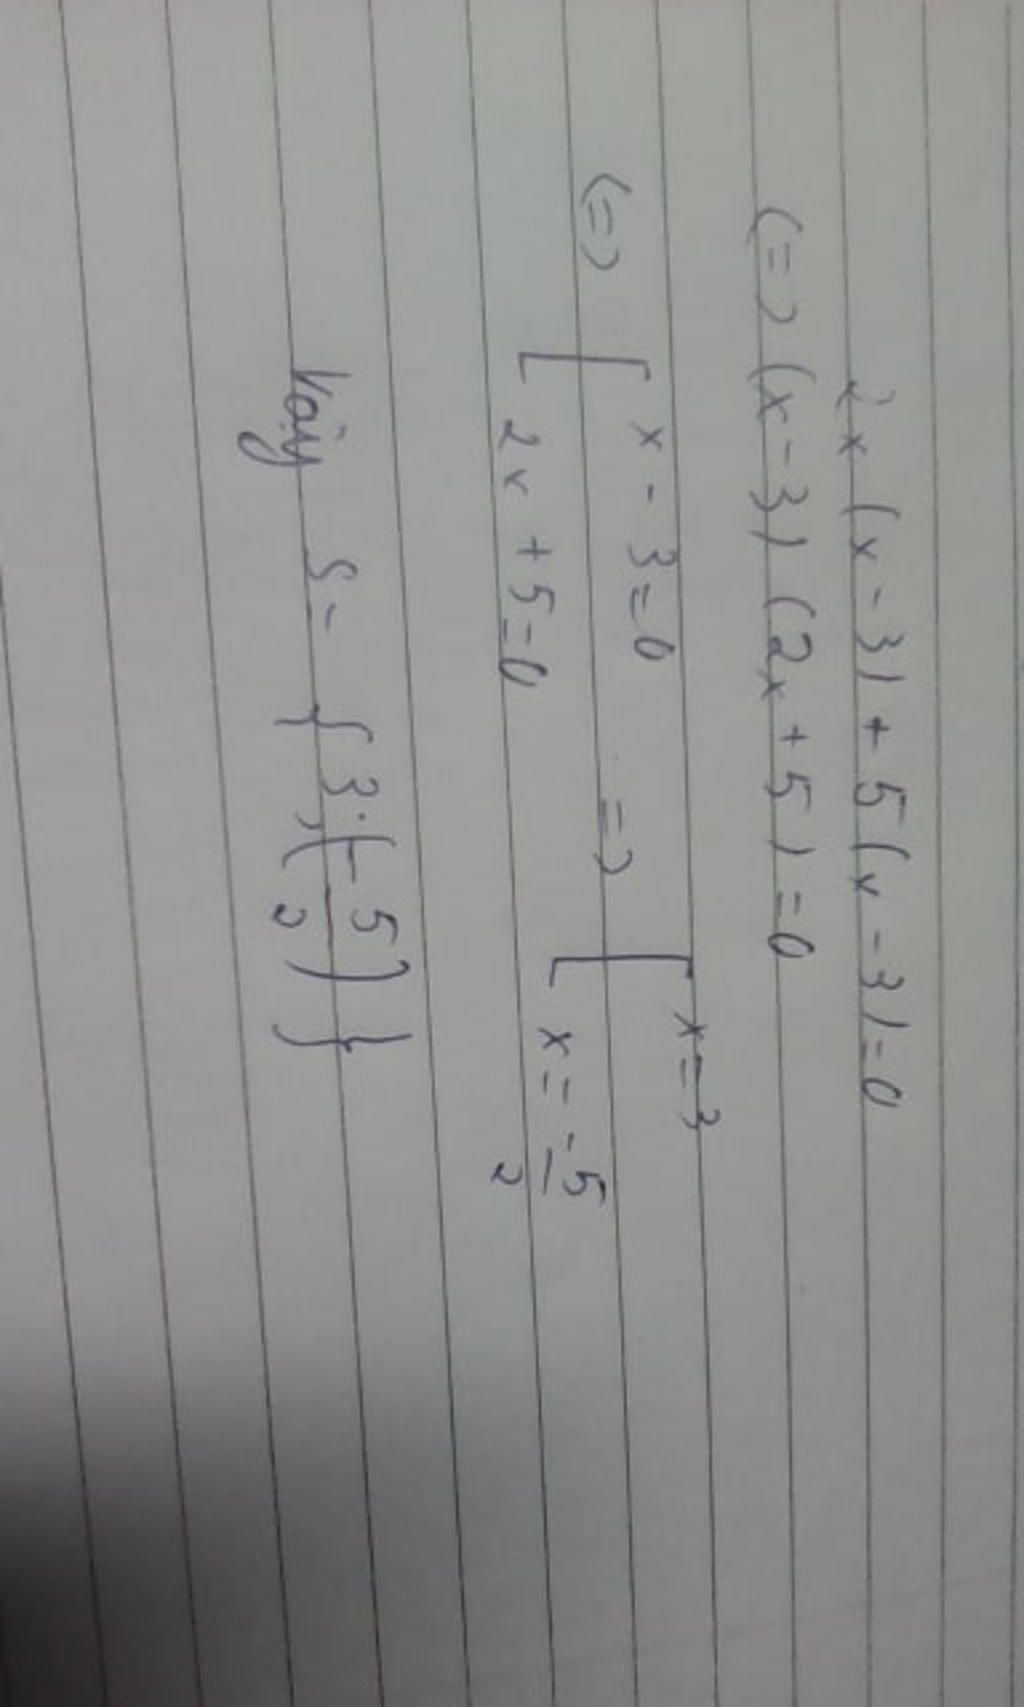 2x (x - 3) + 5 (x - 3) = 0
(=) (x - 3) (2x + 5) = 0
(=) [ x - 3 = 0 => [ x = 3
2x + 5 = 0 x = -5/2
Vậy S = { 3 ; (-5/2) }